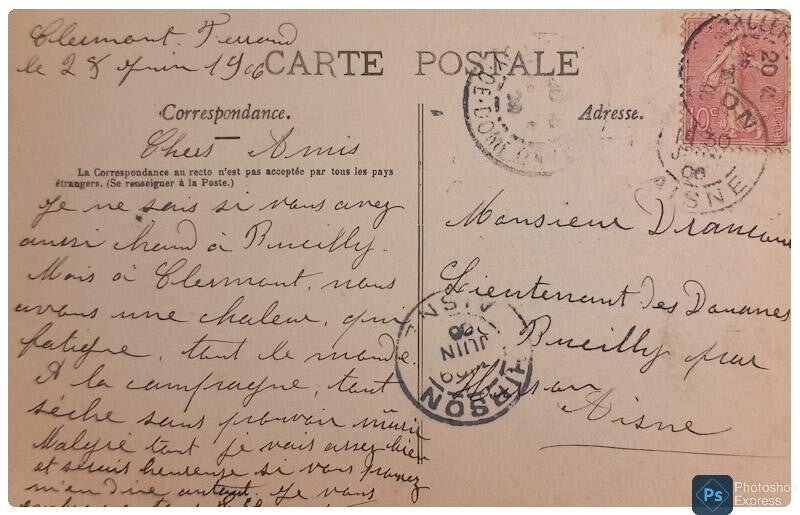 Clermont-Ferrand
le 28 Juin 1906
CARTE POSTALE
Correspondance.
Adresse.
Chers Amis
La Correspondance au recto n'est pas acceptée par tous les pays
étrangers. (Se renseigner à la Poste.)
Je ne sais si vous avez
aussi chaud à Bucilly.
Mais à Clermont, nous
avons une chaleur, qui
fatigue, tout le monde.
A la campagne, tout
sèche sans pouvoir mûrir
Malgré tout je vais assez bien
et serais heureuse si vous pouvez
m'en dire autant. Je vous
Monsieur
Lieutenant des Douanes
Bucilly par
Hirson
Aisne
10c
30
JUIN
06
AISNE
HIRSON
JUIN
06
PUY-DE-DOME
Ps Photosho
Express